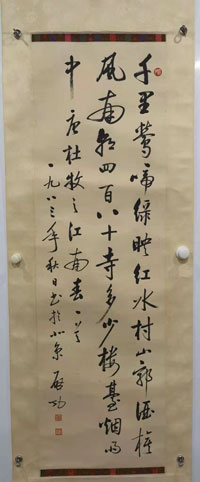 千里鶯啼綠映紅水村山郭酒旗
風南朝四百八十寺多少樓臺烟雨
中 唐杜牧之江南春一首
一九八三年秋日書於北京 啟功